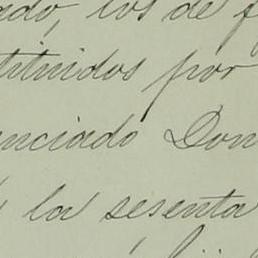 ado, los de f
tituidos por
nciado Don
la sesenta